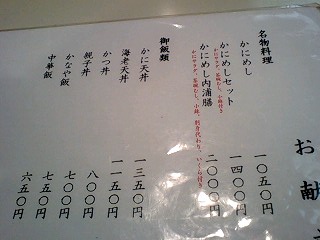 お献
名物料理
かにめし 一〇五〇円
かにめしセット 一四〇〇円
かにめし内浦膳 二〇〇〇円
御飯類
かに天丼 一三五〇円
海老天丼 一一五〇円
かつ丼 八〇〇円
親子丼 七〇〇円
かなや飯 七五〇円
中華飯 六五〇円